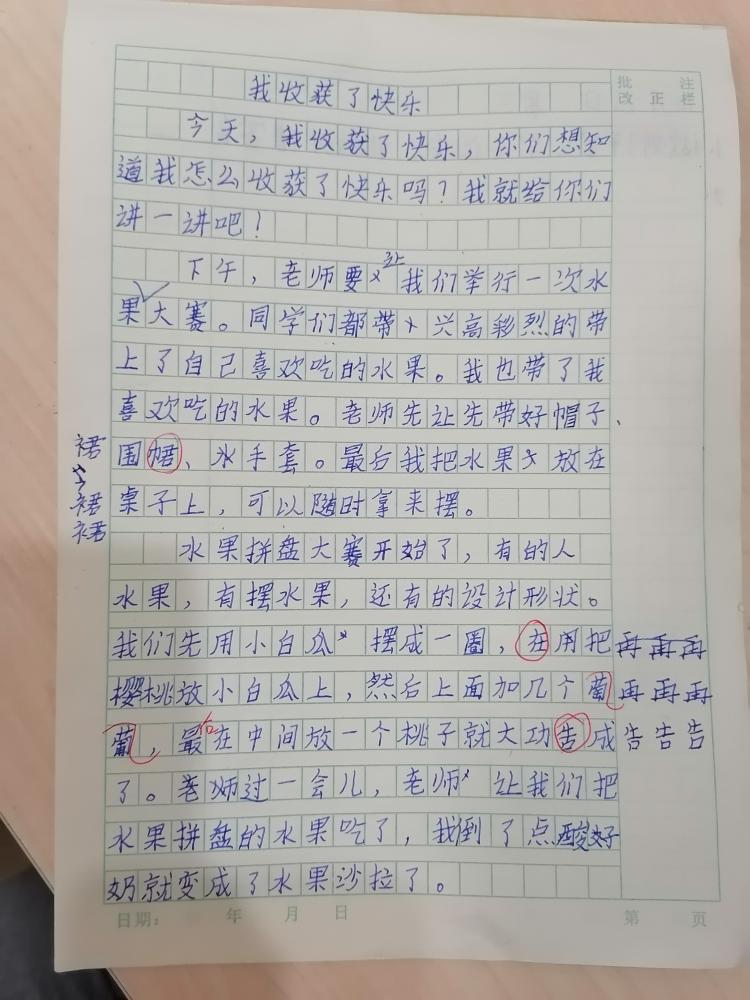 批 注
改 正 栏
我收获了快乐
今天，我收获了快乐，你们想知
道我怎么收获了快乐吗？我就给你们
讲一讲吧！
让
下午，老师要我们举行一次水
果大赛。同学们都带兴高彩烈的带
上了自己喜欢吃的水果。我也带了我
喜欢吃的水果。老师先让先带好帽子、
围裙、手套。最后我把水果放在
裙
裙
裙
桌子上，可以随时拿来摆。
水果拼盘大赛开始了，有的人
水果，有摆水果，还有的设计形状。
我们先用小白瓜摆成一圈，在用把
再再再
樱桃放小白瓜上，然后上面加几个葡
再再再
葡，最后在中间放一个桃子就大功告成
告告告
了。老师过一会儿，老师让我们把
水果拼盘的水果吃了，我倒了点酸好
奶就变成了水果沙拉了。
日期： 年 月 日 第 页